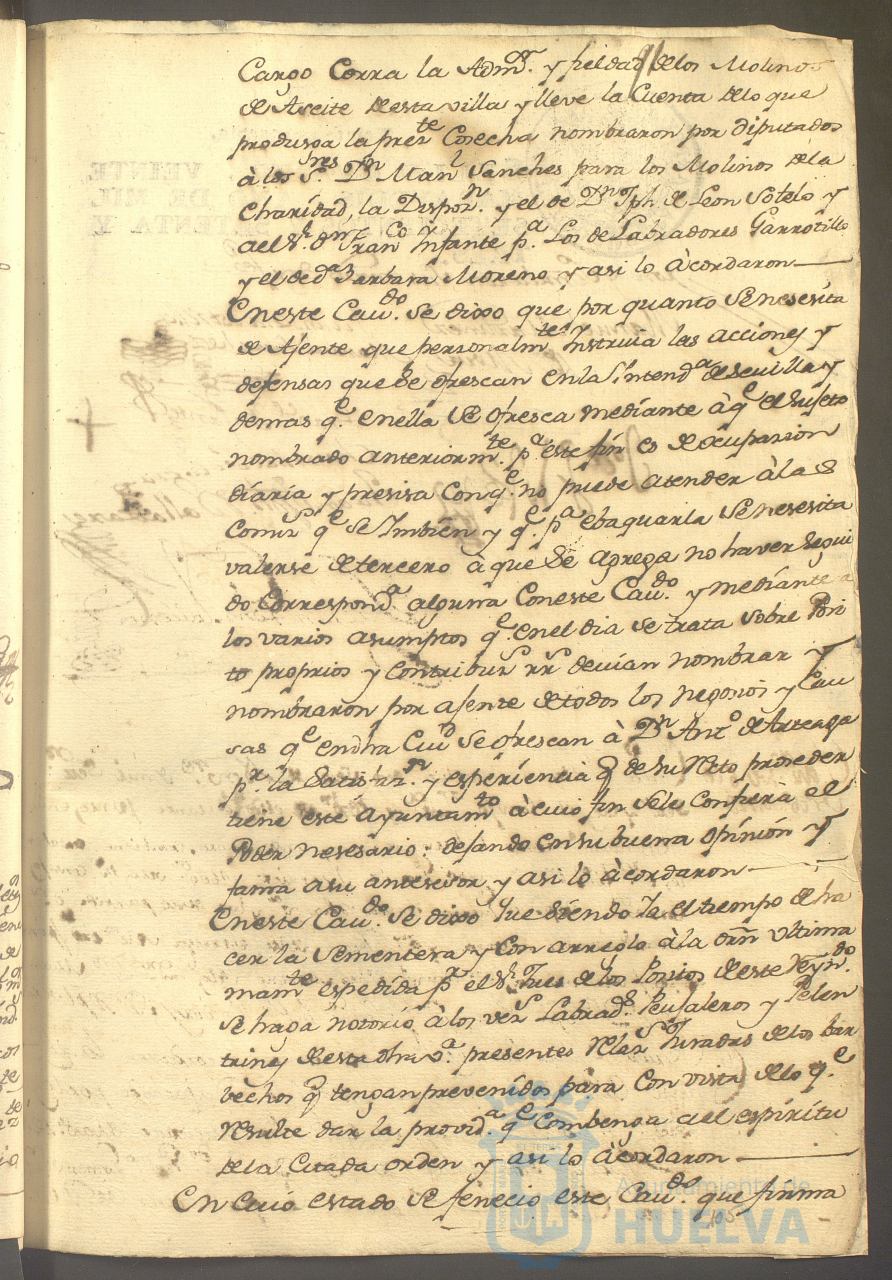 91
Cargo Corra la Admon. y fieldad de los Molinos
de Aseite de esta villa y lleve la Cuenta de lo que
produsga la preste Cosecha nombraron por diputados
à los Sres. Dn Manl Sanches para los Molinos de la
Charidad, la Dispon. y el de Dn Jph. de Leon Sotelo y
a el Sr. dn Franco Infante pa. Los de Labradores Garrotillo
y el de da Barbara Moreno y asi lo àcordaron
En este Cavdo. se dixo que por quanto se nesesita
de Ajente que personalmte Instruia las acciones y
defensas que se ofrescan en la Sintenda de Sevilla y
demas qe en ella se ofresca mediante à qe el sujeto
nombrado anteriormte. pa este fin es de ocupasion
diaria y presisa con qe. no puede atender à las
Comis qe se Imbien y qe pa ebaquarla se nesesita
valerse de tercero a que se agrega no haver segui
do Corresponda alguna Con este Cavdo. y mediante a
los varios asumptos qe. en el dia se trata sobre Posi
to proprios y Contribus rrs devian nombrar y
nombraron por ajente de todos los negosios y Cau
sas qe en dha Ciud se ofrescan à Dn Anto de Arteaga
pr. la satisfn. y esperiencia q de su Neto proceder
tiene este Ayuntamto à cuio fin se le Confiera el
Poder nesesario: dejando en su buena opinion y
fama a su antesesor y asi lo àcordaron
En este Cavdo. Se dixo que siendo Ya el tiempo de ha
cer la sementera y Con arreglo à la orn ultima
mamte espedida pr el Sr. Jues de los Positos de este Reyndo.
se haga notorio à los vesos Labrads. Peujaleros y Pelen
trines de esta dha va. presenten Relass Juradas de los bar
vechos q tengan prevenidos para Con vista de lo qe.
Resulte dar la provida qe Combenga a el espiritu
de la Citada orden y asi lo àcordaron
En Cuio estado se fenecio este Cavdo. que firma
Ayuntamiento de
HUELVA